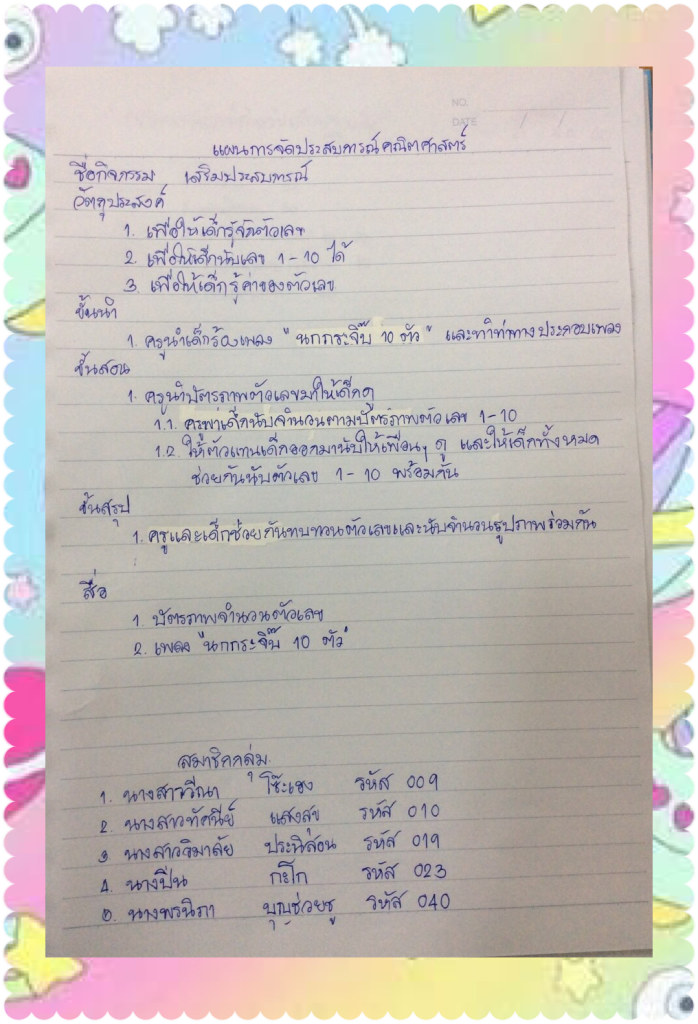 NO.
DATE
แผนการจัดประสบการณ์คณิตศาสตร์
ชื่อกิจกรรม เสริมประสบการณ์
วัตถุประสงค์
1. เพื่อให้เด็กรู้จักตัวเลข
2. เพื่อให้เด็กนับเลข 1-10 ได้
3. เพื่อให้เด็กรู้ค่าของตัวเลข
ขั้นนำ
1. ครูนำเด็กร้องเพลง "นกกระจิ๊บ 10 ตัว" และทำท่าทางประกอบเพลง
ขั้นสอน
1. ครูนำบัตรภาพตัวเลขมาให้เด็กดู
1.1. ครูพาเด็กนับจำนวนตามบัตรภาพตัวเลข 1-10
1.2. ให้ตัวแทนเด็กออกมานับให้เพื่อนๆ ดู และให้เด็กทั้งหมด
ช่วยกันนับตัวเลข 1-10 พร้อมกัน
ขั้นสรุป
1. ครูและเด็กช่วยกันทบทวนตัวเลขและนับจำนวนรูปภาพร่วมกัน
สื่อ
1. บัตรภาพจำนวนตัวเลข
2. เพลง "นกกระจิ๊บ 10 ตัว"
สมาชิกกลุ่ม
1. นางสาววีณา รหัส 009
2. นางสาวทัศนีย์ แสงสุข รหัส 010
3. นางสาววิมาลัย ประนิสอน รหัส 019
4. นางปิ่น กะโก รหัส 023
5. นางพรนิภา บุญช่วยชู รหัส 040